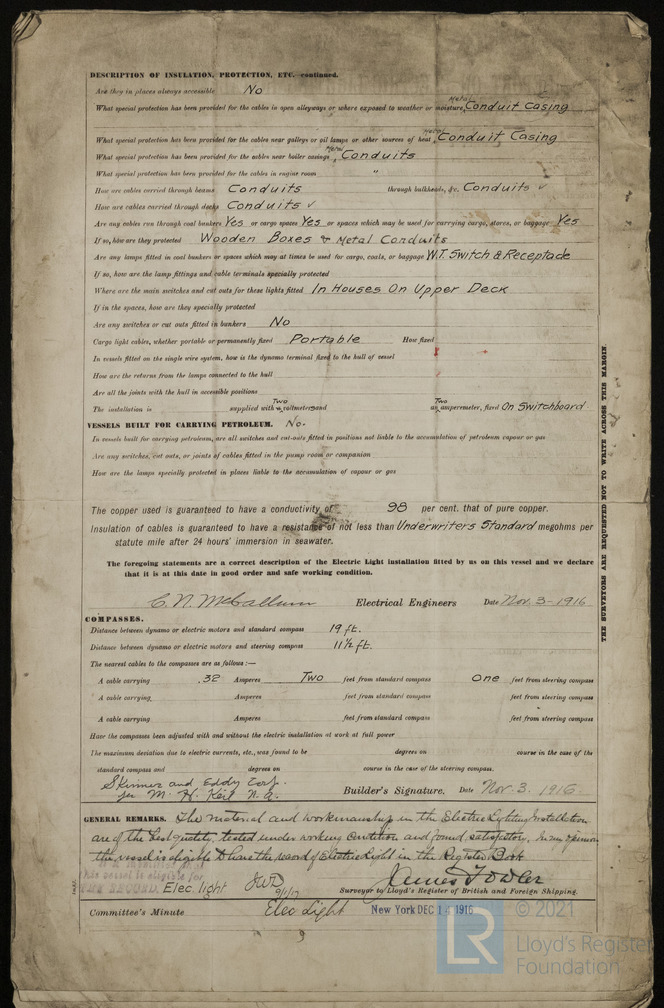 DESCRIPTION OF INSULATION, PROTECTION, ETC.—continued.
Are they in places always accessible No
What special protection has been provided for the cables in open alleyways or where exposed to weather or moisture Metal Conduit Casing
What special protection has been provided for the cables near galleys or oil lamps or other sources of heat Metal Conduit Casing
What special protection has been provided for the cables near boiler casings Metal Conduits
What special protection has been provided for the cables in engine room "
How are cables carried through beams Conduits through bulkheads, &c. Conduits ✓
How are cables carried through decks Conduits ✓
Are any cables run through coal bunkers Yes or cargo spaces Yes or spaces which may be used for carrying cargo, stores, or baggage Yes
If so, how are they protected Wooden Boxes & Metal Conduits
Are any lamps fitted in coal bunkers or spaces which may at times be used for cargo, coals, or baggage W.T. Switch & Receptacle
If so, how are the lamp fittings and cable terminals specially protected
Where are the main switches and cut outs for these lights fitted In Houses On Upper Deck
If in the spaces, how are they specially protected
Are any switches or cut outs fitted in bunkers No
Cargo light cables, whether portable or permanently fixed Portable How fixed
In vessels fitted on the single wire system, how is the dynamo terminal fixed to the hull of vessel
How are the returns from the lamps connected to the hull
Are all the joints with the hull in accessible positions
The installation is supplied with Two voltmeters and Two amperemeter, fixed On Switchboard
VESSELS BUILT FOR CARRYING PETROLEUM. No.
In vessels built for carrying petroleum, are all switches and cut-outs fitted in positions not liable to the accumulation of petroleum vapour or gas
Are any switches, cut outs, or joints of cables fitted in the pump room or companion
How are the lamps specially protected in places liable to the accumulation of vapour or gas
The copper used is guaranteed to have a conductivity of 98 per cent. that of pure copper.
Insulation of cables is guaranteed to have a resistance of not less than Underwriters Standard megohms per
statute mile after 24 hours' immersion in seawater.
The foregoing statements are a correct description of the Electric Light installation fitted by us on this vessel and we declare
that it is at this date in good order and safe working condition.
C. N. McCallum Electrical Engineers Date Nov. 3-1916
COMPASSES.
Distance between dynamo or electric motors and standard compass 19 ft.
Distance between dynamo or electric motors and steering compass 11½ ft.
The nearest cables to the compasses are as follows:—
A cable carrying .32 Amperes Two feet from standard compass One feet from steering compass
A cable carrying Amperes feet from standard compass feet from steering compass
A cable carrying Amperes feet from standard compass feet from steering compass
Have the compasses been adjusted with and without the electric installation at work at full power
The maximum deviation due to electric currents, etc., was found to be degrees on course in the case of the
standard compass and degrees on course in the case of the steering compass.
Skinner and Eddy Corp.
per M. H. Builder's Signature. Date Nov. 3. 1916.
GENERAL REMARKS. The material and workmanship in the Electric Lighting Installation
are of the best quality, tested under working condition and found satisfactory, In my opinion
the vessel is eligible to have the record of Electric Light in the Register Book
this vessel is eligible for
THE RECORD. Elec. light JWD 9/1/17
James Fowler
Surveyor to Lloyd's Register of British and Foreign Shipping.
Committee's Minute Elec Light New York DEC 14 1916
THE SURVEYORS ARE REQUESTED NOT TO WRITE ACROSS THIS MARGIN.
9
LR
© 2021
Lloyd's Register
Foundation